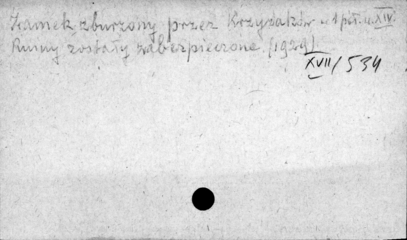 Zamek zburzony przez Krzyżaków w 1 poł. w. XIV.
Ruiny zostały zabezpieczone. (1929)
XVII/534